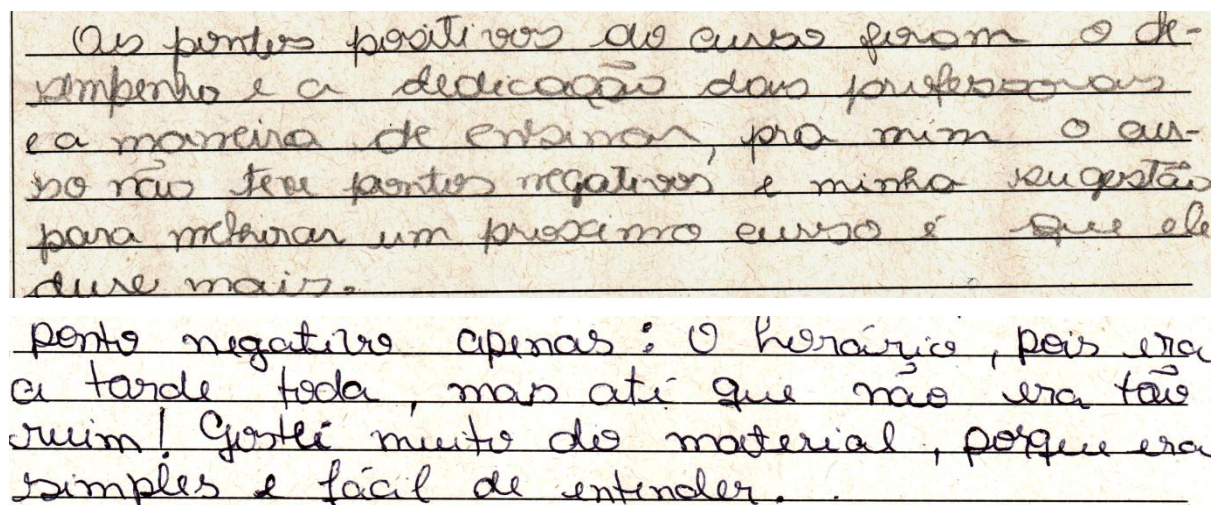 Os pontos positivos do curso foram o de-
sempenho e a dedicação das professoras
e a maneira de ensinar, pra mim o cur-
so não teve pontos negativos e minha sugestão
para melhorar um proximo curso é que ele
dure mais.
ponto negativo apenas: O horário, pois era
a tarde toda, mas até que não era tão
ruim! Gostei muito do material, porque era
simples e fácil de entender.